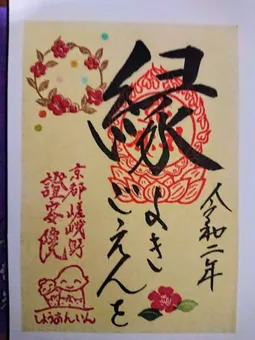 縁
よき
ごえんを
令和二年
京都 嵯峨野
證安院
しょうあんいん